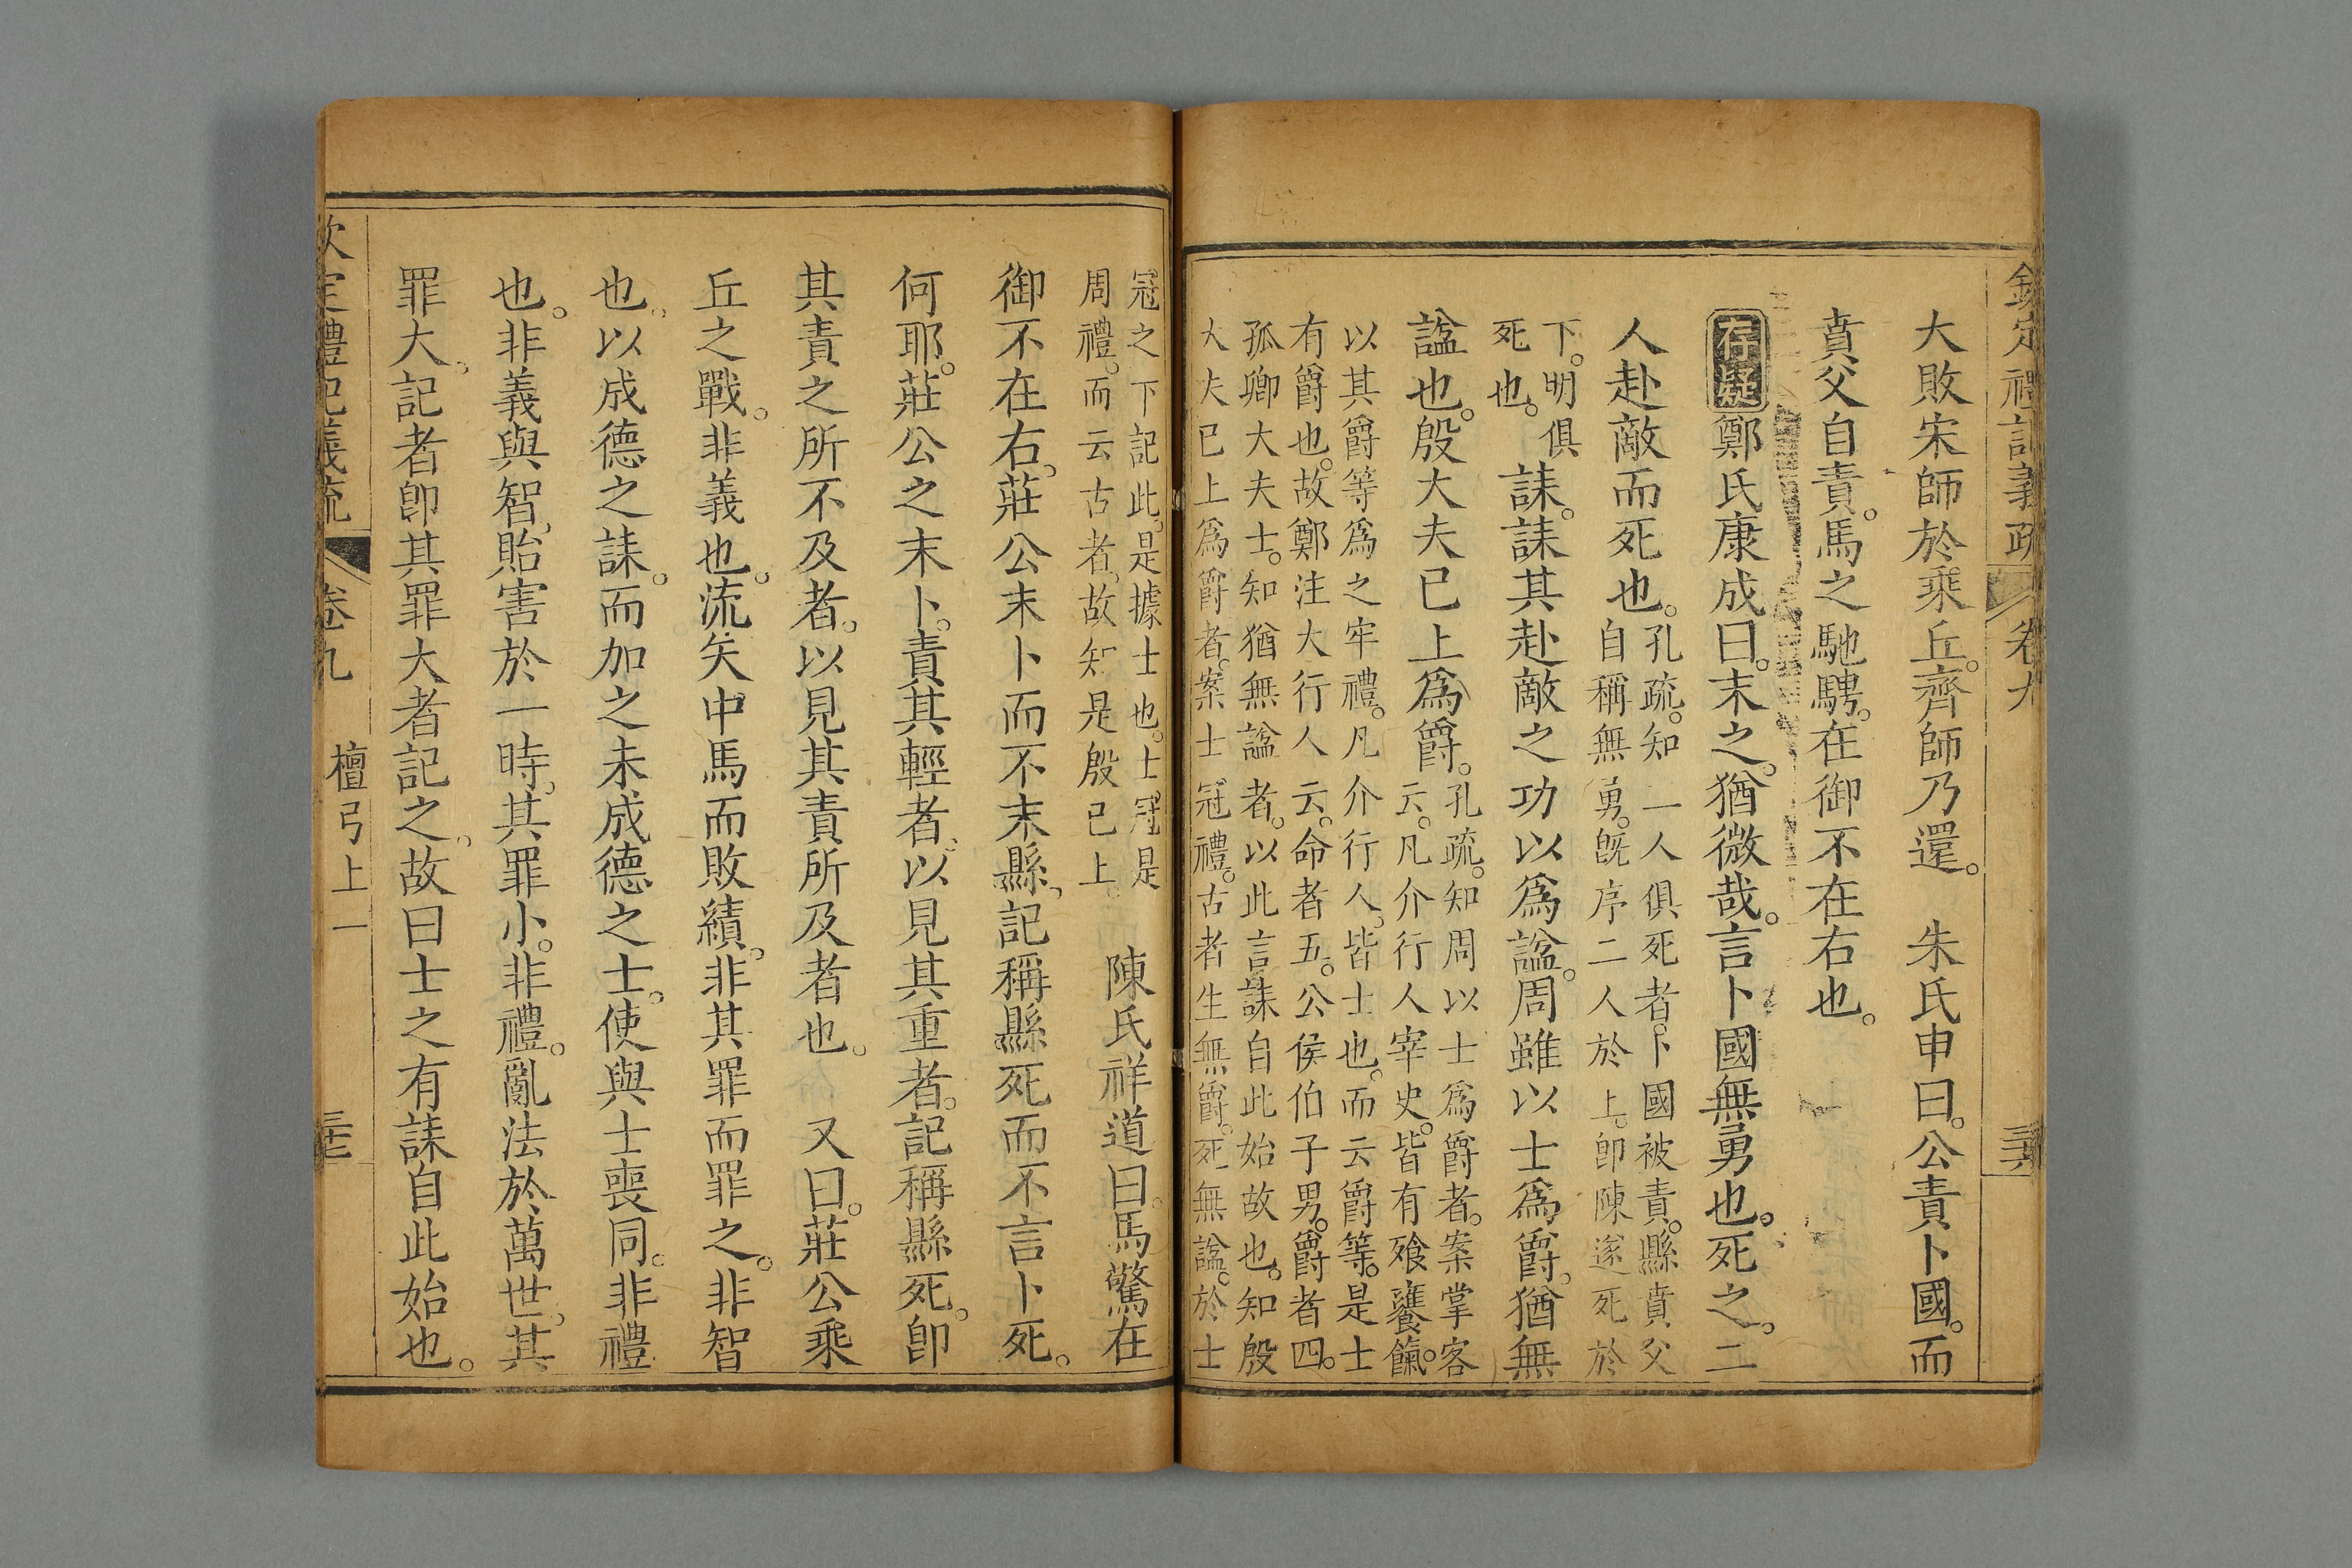 欽定禮記義疏 卷九 三十六
大敗宋師於乘丘。齊師乃還。 朱氏申曰。公責卜國。而
賁父自責。馬之馳騁。在御不在右也。
存疑 鄭氏康成曰。末之。猶微哉。言卜國無勇也。死之。二
人赴敵而死也。
孔疏。知一人俱死者。卜國被責。縣賁父
自稱無勇。旣序二人於上。卽陳遂死於
下。明俱
死也。
誄。誄其赴敵之功以爲諡。周雖以士爲爵。猶無
諡也。殷大夫已上爲爵。
孔疏。知周以士爲爵者。案掌客
云。凡介行人宰史。皆有飱饔餼。
以其爵等爲之牢禮。凡介行人。皆士也。而云爵等。是士
有爵也。故鄭注大行人云。命者五。公侯伯子男。爵者四。
孤卿大夫士。知猶無諡者。以此言誄自此始故也。知殷
大夫已上爲爵者。案士冠禮。古者生無爵。死無諡。於士
冠之下記此。是據士也。士冠是
周禮。而云古者。故知是殷已上。
陳氏祥道曰。馬驚在
御不在右。莊公末卜而不末縣。記稱縣死而不言卜死。
何耶。莊公之末卜。責其輕者。以見其重者。記稱縣死。卽
其責之所不及者。以見其責所及者也。 又曰。莊公乘
丘之戰。非義也。流矢中馬而敗績。非其罪而罪之。非智
也。以成德之誄。而加之未成德之士。使與士喪同。非禮
也。非義與智。貽害於一時。其罪小。非禮。亂法於萬世。其
罪大。記者卽其罪大者記之。故曰士之有誄自此始也。
欽定禮記義疏 卷九 檀弓上一 三十七